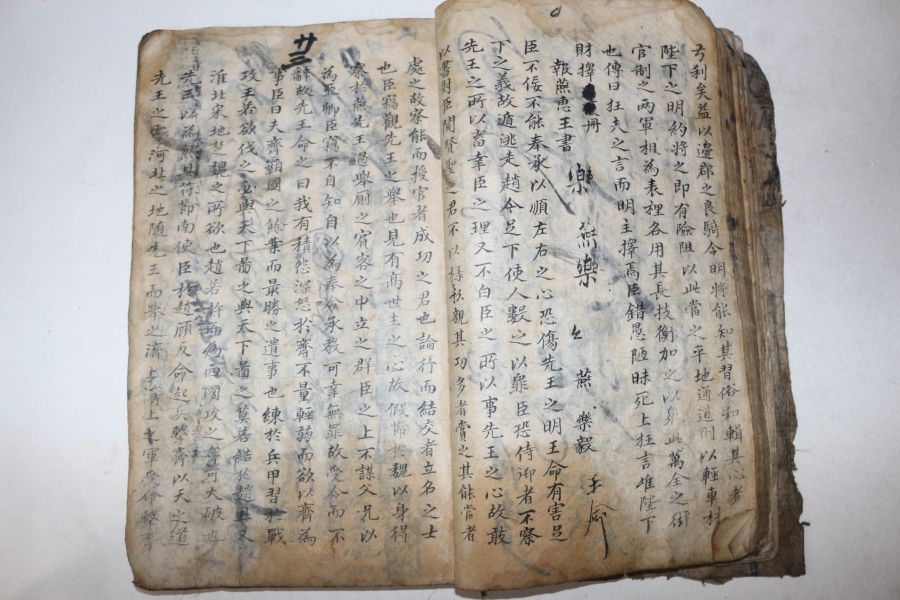 利矣益以邊郡之良騎令明將能知其習俗和輯其心者
陛下之明約將之即有險阻以此當之平地通道則以輕車材
官制之兩軍相為表裡各用其長技衡加之以衆此萬全之術
也傳曰狂夫之言而明主擇焉臣錯愚陋昧死上狂言唯陛下
財擇
報燕惠王書 樂毅
臣不佞不能奉承以順左右之心恐傷先王之明王命有害足
下之義故遁逃走趙今足下使人數之以罪臣恐侍御者不察
先王之所以畜幸臣之理又不白臣之所以事先王之心故敢
以書對臣聞賢聖之君不以祿私親其功多者賞之其能當者
處之故察能而授官者成功之君也論行而結交者立名之士
也臣竊觀先王之舉也見有高世主之心故假節於魏以身得
察於燕先王過舉廁之賓客之中立之群臣之上不謀父兄以
為亞卿臣竊不自知自以為奉令承教可幸無罪故受令而不
辭故先王命之曰我有積怨深怒於齊不量輕弱而欲以齊為
事臣曰夫齊霸國之餘業而最勝之遺事也練於兵甲習於戰
攻王若欲伐之必與天下圖之與天下圖之莫若結於趙且又
淮北宋地楚魏之所欲也趙若許而約四國攻之齊可大破也
先王以為然具符節南使臣於趙顧反命起兵擊齊以天之道
先王之靈河北之地隨先王而舉之濟上濟上之軍受命擊齊
廿三